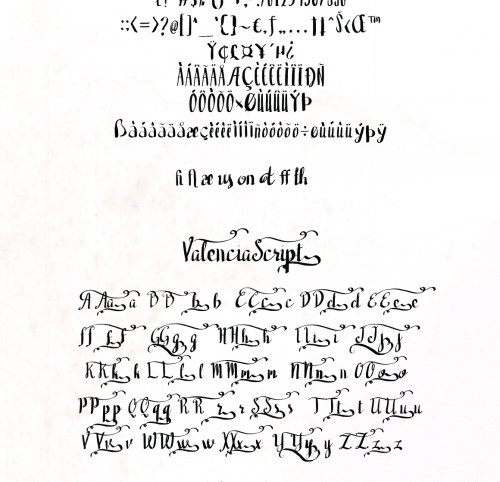 ::<=>?@[]^_`{}~€‚ƒ„…†‡ˆŠ‹Œ™
Ÿ¢£¤¥´µ¿
ÀÁÂÃÄÅÆÇÈÉÊËÌÍÎÏÐÑ
ÓÔÕÖ×ØÙÚÛÜÝÞ
ßàáâãäåæçèéêëìíîïñòóôõö÷øùúûüýþÿ
fi fl æ us on ct ff th
ValenciaScript
A A a a B B b b C C c c D D d d E E e e
f f f f G G g g H H h h I I i i J J j j
K K k k L L l l M M m m N N n n O O o o
P P p p Q Q q q R R r r S S s s T T t t U U u u
V V v v W W w w X X x x Y Y y y Z Z z z